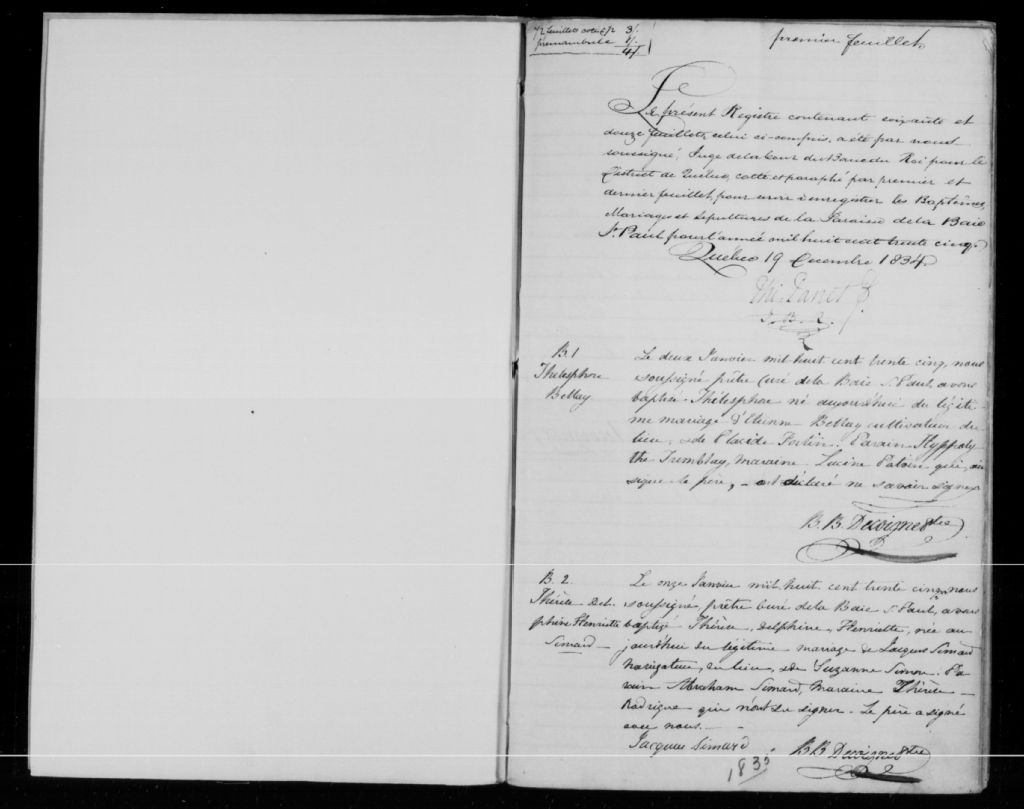 72 feuillets coté 1/2 3/.
preambule 1/.
4/
premier feuillet
Le présent Registre contenant soixante et
douze feuillets, celui ci-compris, a été par nous
soussigné, Juge de la Cour du Banc du Roi pour le
District de Québec, cotté et paraphé par premier et
dernier feuillet, pour servir à enregistrer les Baptêmes,
Mariages et sépultures de la Paroisse de la Baie
St. Paul pour l'année mil huit cent trente cinq.
Québec 19 Decembre 1834.
Phi. Panet
J. B. R.
B. 1
Thélesphore
Bellay
Le deux Janvier mil huit cent trente cinq, nous
soussigné prêtre curé de la Baie St. Paul, avons
baptisé Thélesphore né aujourd'hui du légiti-
me mariage d'Etienne Bellay cultivateur du
lieu, & de Placide Fortin. Parain Hyppoly
the Tremblay, Maraine Lucine qui, 
signé le père, ont déclaré ne savoir signer
B. B. Decoigne Ptre
B. 2.
Thérèse Del-
phine Henriette
Simard
Le onze Janvier mil huit cent trente cinq, nous
soussigné, prêtre curé de la Baie St. Paul, avons
baptisé Thérèse, Delphine, Henriette, née au-
jourd'hui du légitime mariage de Jacques Simard
Navigateur, du lieu, & de Suzanne Simon. Pa-
rain Abraham Simard, Maraine Thérèse
Rodrigue qui n'ont su signer. Le père a signé
avec nous.
Jacques Simard
B. B. Decoigne Ptre
1835